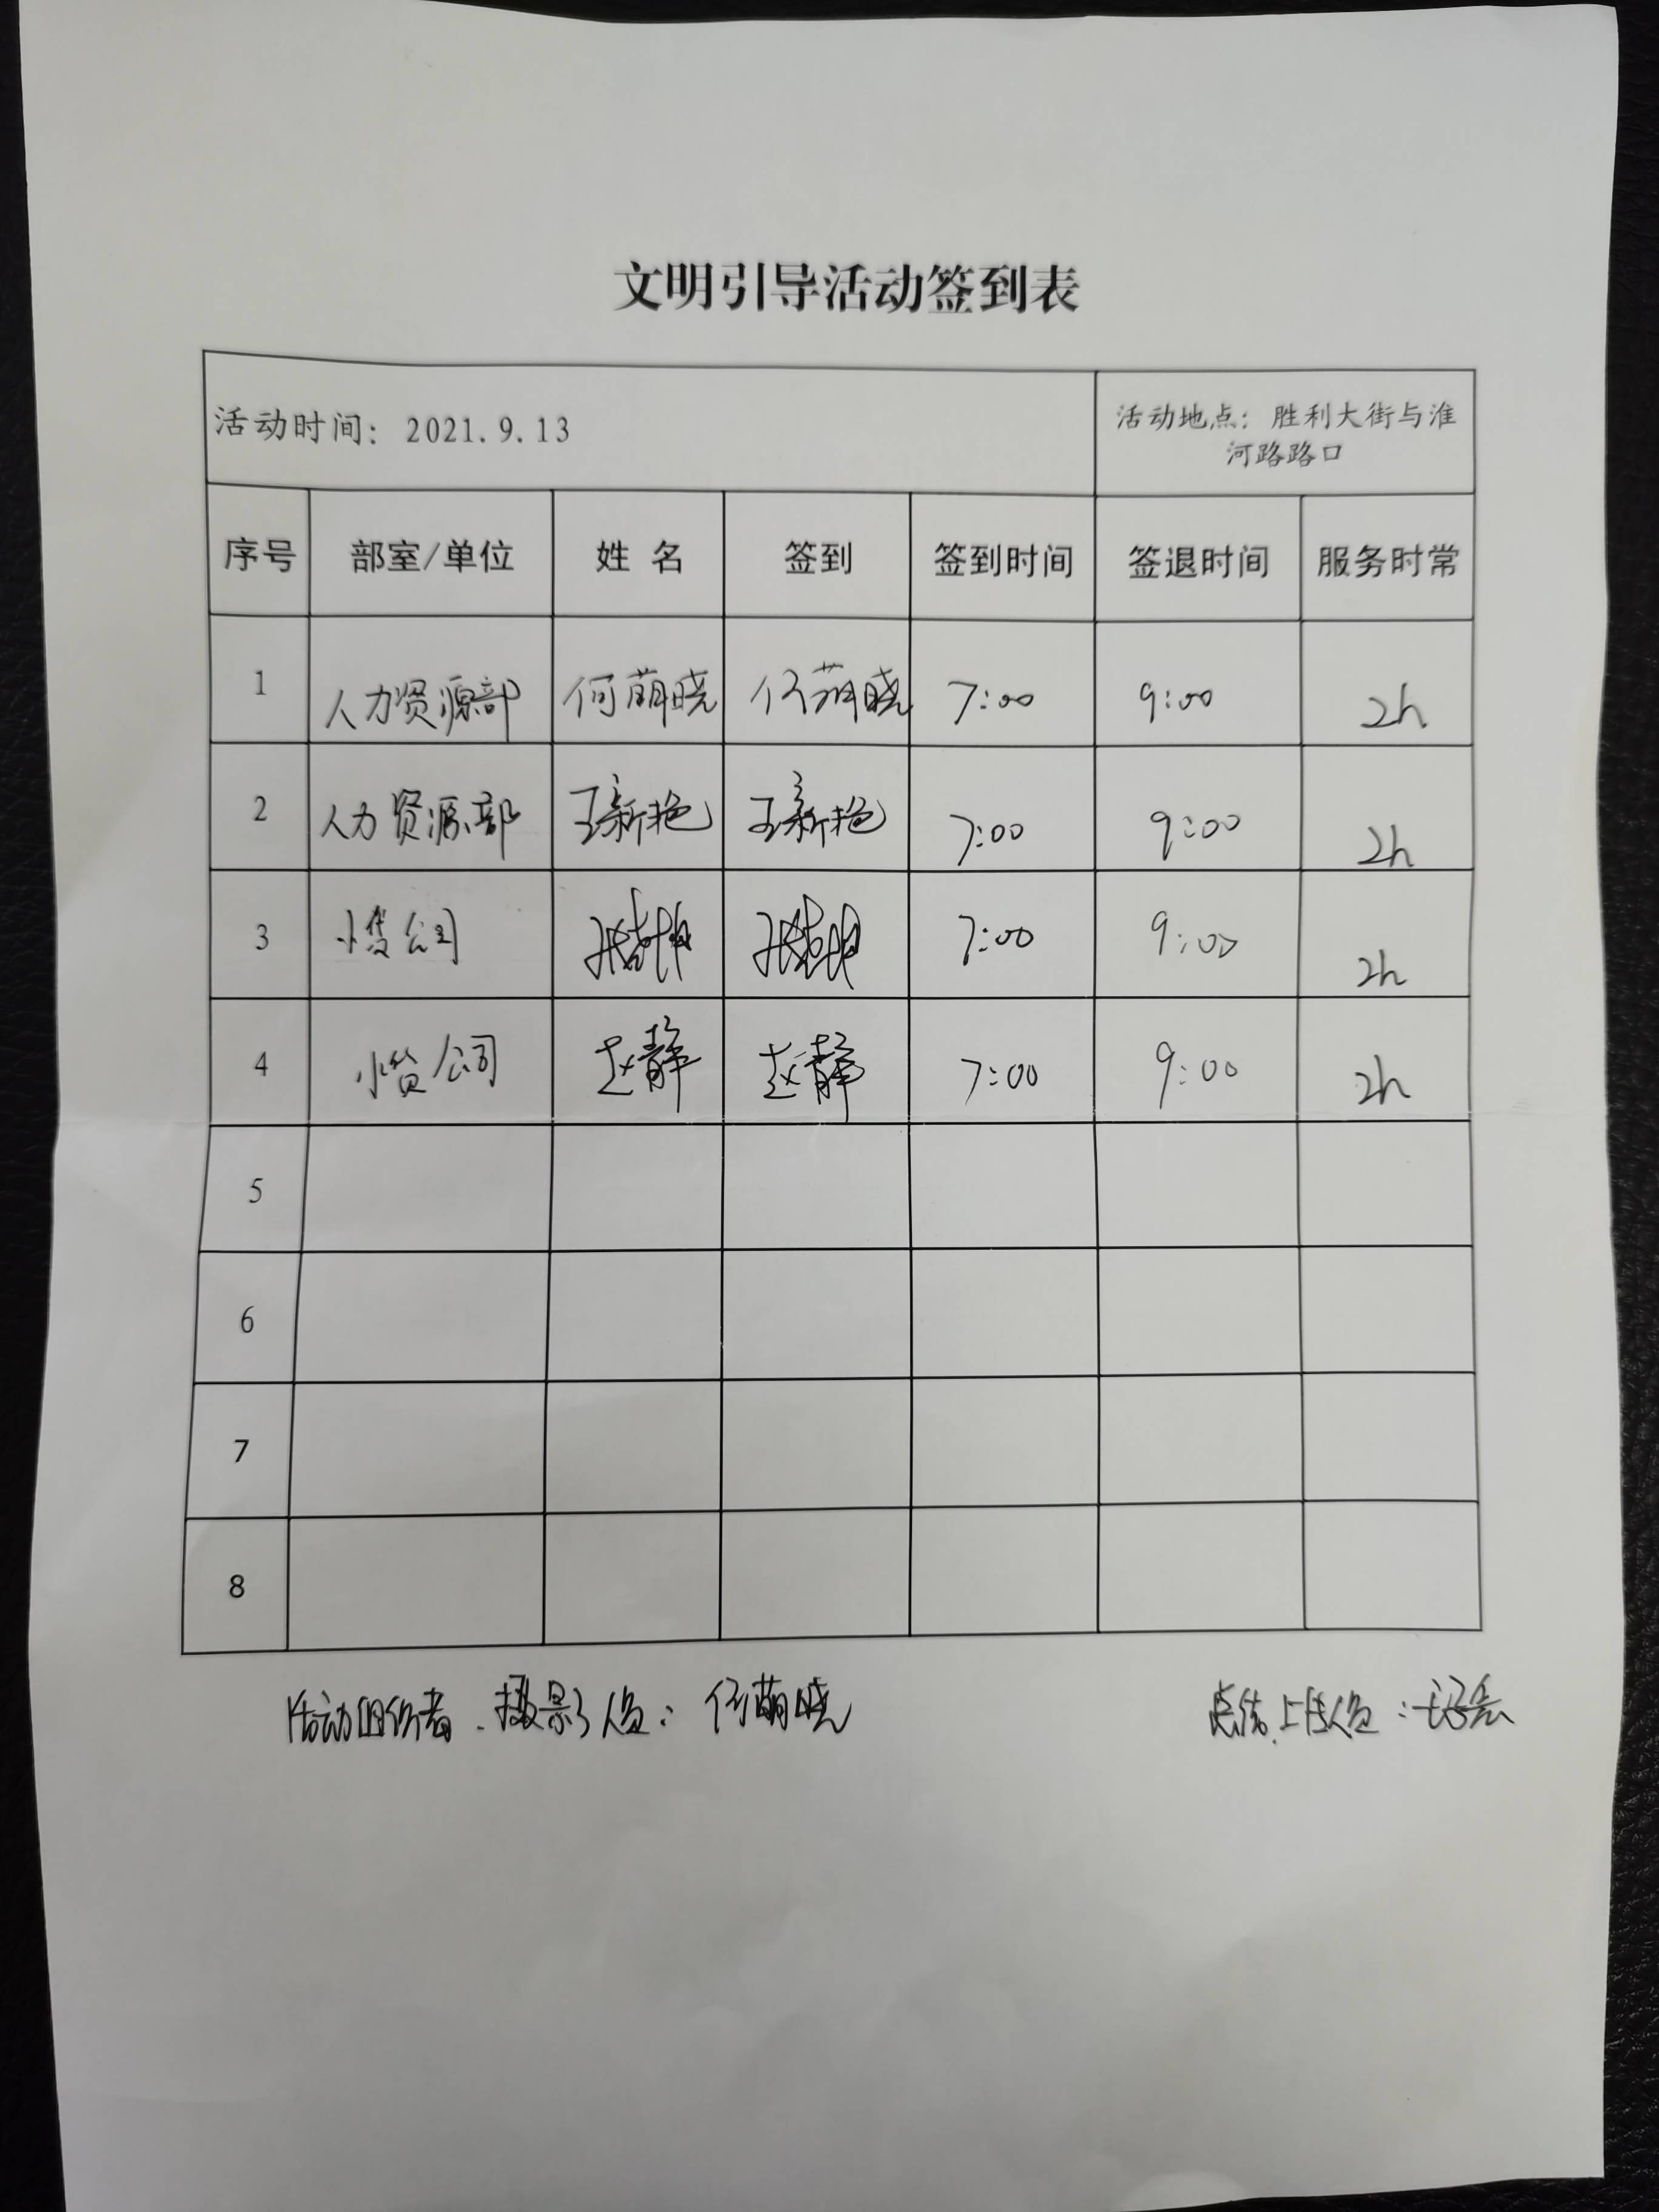 文明引导活动签到表
活动时间: 2021.9.13
活动地点: 胜利大街与淮
河路路口
序号 部室/单位 姓 名 签到 签到时间 签退时间 服务时常
1 人力资源部 何萌晓 何萌晓 7:00 9:00 2h
2 人力资源部 王新艳 王新艳 7:00 9:00 2h
3 小贷公司 7:00 9:00 2h
4 小贷公司 赵静 赵静 7:00 9:00 2h
5
6
7
8
活动组织者、摄影人员: 何萌晓
总结、上传人员: